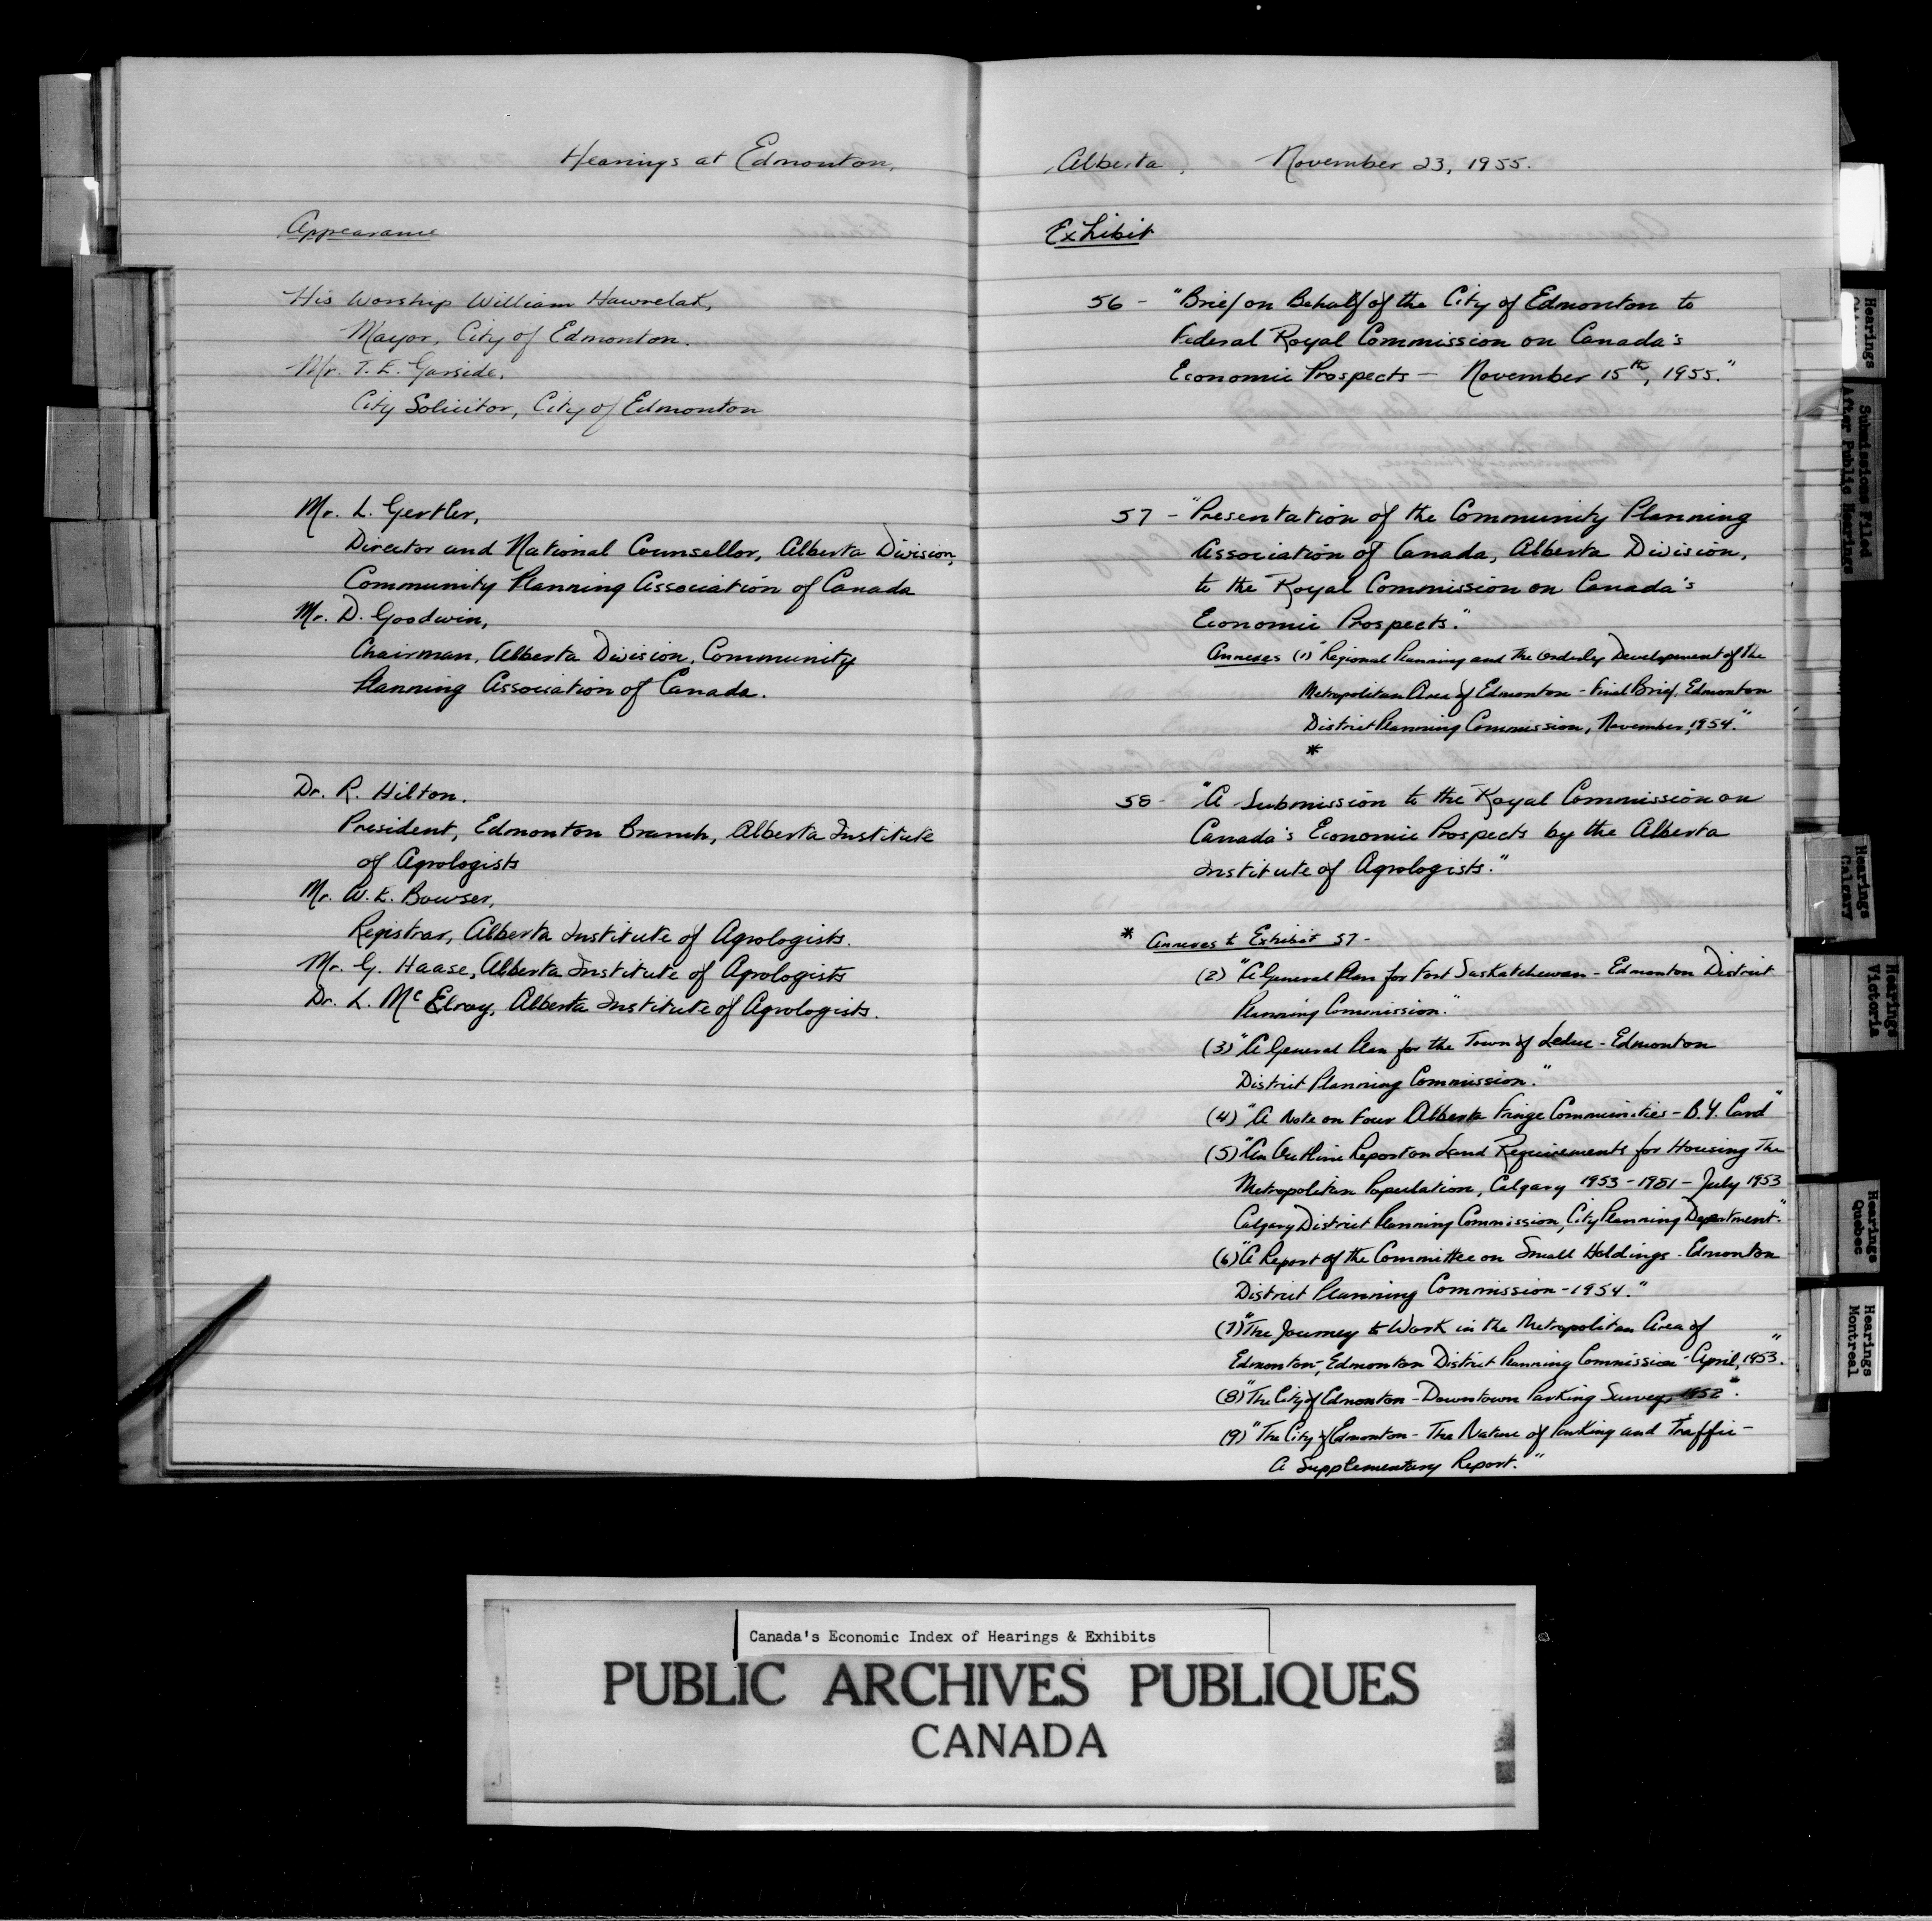 Hearings at Edmonton,
Appearance
His Worship William Hawrelak,
Mayor, City of Edmonton.
Mr. T. E. Garside,
City Solicitor, City of Edmonton
Mr. L. Gertler,
Director and National Counsellor, Alberta Division,
Community Planning Association of Canada
Mr. D. Goodwin,
Chairman, Alberta Division, Community
Planning Association of Canada.
Dr. R. Hilton.
President, Edmonton Branch, Alberta Institute
of Agrologists
Mr. W. E. Bowser,
Registrar, Alberta Institute of Agrologists.
Mr. G. Haase, Alberta Institute of Agrologists
Dr. L. McElroy, Alberta Institute of Agrologists.
Alberta, November 23, 1955.
Exhibit
56 - "Brief on Behalf of the City of Edmonton to
Federal Royal Commission on Canada's
Economic Prospects — November 15th, 1955."
57 - "Presentation of the Community Planning
Association of Canada, Alberta Division,
to the Royal Commission on Canada's
Economic Prospects."
Annexes (1) "Regional Planning and The Orderly Development of the
Metropolitan Area of Edmonton - Final Brief, Edmonton
District Planning Commission, November, 1954."
*
58 - "A Submission to the Royal Commission on
Canada's Economic Prospects by the Alberta
Institute of Agrologists."
* Annexes to Exhibit 57 -
(2) "A General Plan for Fort Saskatchewan - Edmonton District
Planning Commission."
(3) "A General Plan for the Town of Leduc - Edmonton
District Planning Commission."
(4) "A Note on Four Alberta Fringe Communities - B.Y. Card"
(5) "An Outline Report on Land Requirements for Housing The
Metropolitan Population, Calgary 1953 - 1981 - July 1953
Calgary District Planning Commission, City Planning Department."
(6) "A Report of the Committee on Small Holdings - Edmonton
District Planning Commission - 1954."
(7) "The Journey to Work in the Metropolitan Area of
Edmonton -, Edmonton District Planning Commission - April, 1953."
(8) "The City of Edmonton - Downtown Parking Survey, 1952".
(9) "The City of Edmonton - The Nature of Parking and Traffic -
A Supplementary Report."
Hearings
Submissions Filed
After Public Hearings
Hearings
Calgary
Hearings
Victoria
Hearings
Quebec
Hearings
Montreal
Canada's Economic Index of Hearings & Exhibits
PUBLIC ARCHIVES PUBLIQUES
CANADA